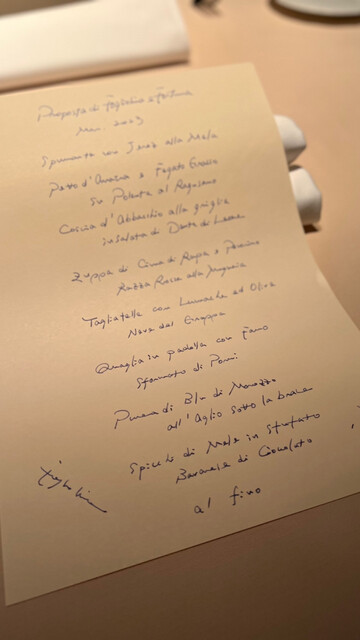 Proposta di Foglietto e Fortuna
Mar. 2023
Spumante con alla Mela
Petto d'Anatra e Fegato Grasso
su Polenta al
Coscia d'Abbacchio alla griglia
insalata di Dente di Leone
Zuppa di Cima di Rapa e Pecorino
Razza Rossa alla Mugnaia
Tagliatelle con Lumache ed Oliva
Nera dal Giappone
Quaglia in padella con Fieno
Sformato di Porri
Purea di Blu di
all'Aglio sotto la brace
Spicchi di Mele in stufato
Bavarese di Cioccolato
al fino